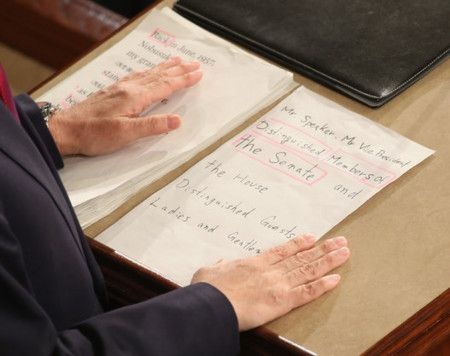 Back in June, 1957,
Nobusuke
my gran
ocean
stand
Mr Speaker, Mr Vice President
Distinguished Members of
the Senate and
the House
Distinguished Guests
Ladies and Gentlem